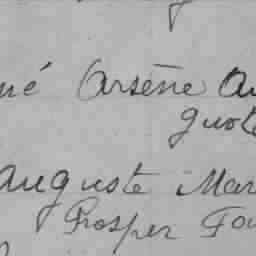 né Arsène Au
guste
Auguste Mar
Prosper Fou